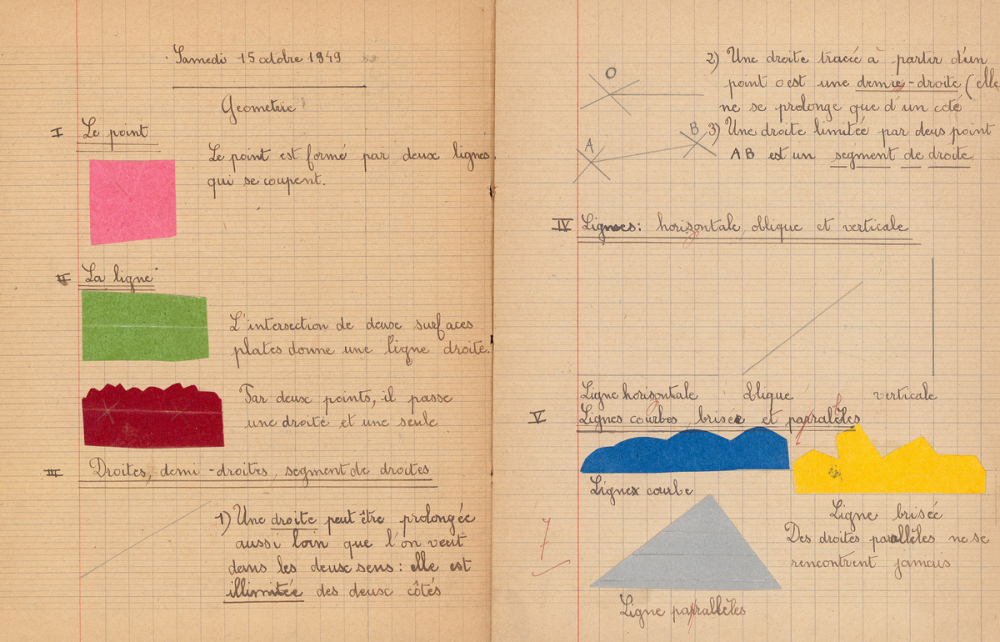 Samedi 15 octobre 1949
Geometrie
I Le point
Le point est formé par deux lignes
qui se coupent.
II La ligne
L'intersection de deux surfaces
plates donne une ligne droite.
Par deux points, il passe
une droite et une seule
III Droites, demi-droites, segment de droites
1) Une droite peut être prolongée
aussi loin que l'on veut
dans les deux sens: elle est
illimitée des deux côtés
2) Une droite tracée à partir d'un
O
point o est une demie-droite (elle
ne se prolonge que d'un coté
3) Une droite limitée par deus point
A B
AB est un segment de droite
IV Lignes: horisontale, oblique et verticale
Ligne horisontale oblique verticale
V Lignes courbes, brisée et parralèles
Lignes courbe
Ligne brisée
7
Des droites parallèles ne se
rencontrent jamais
Ligne parrallèles